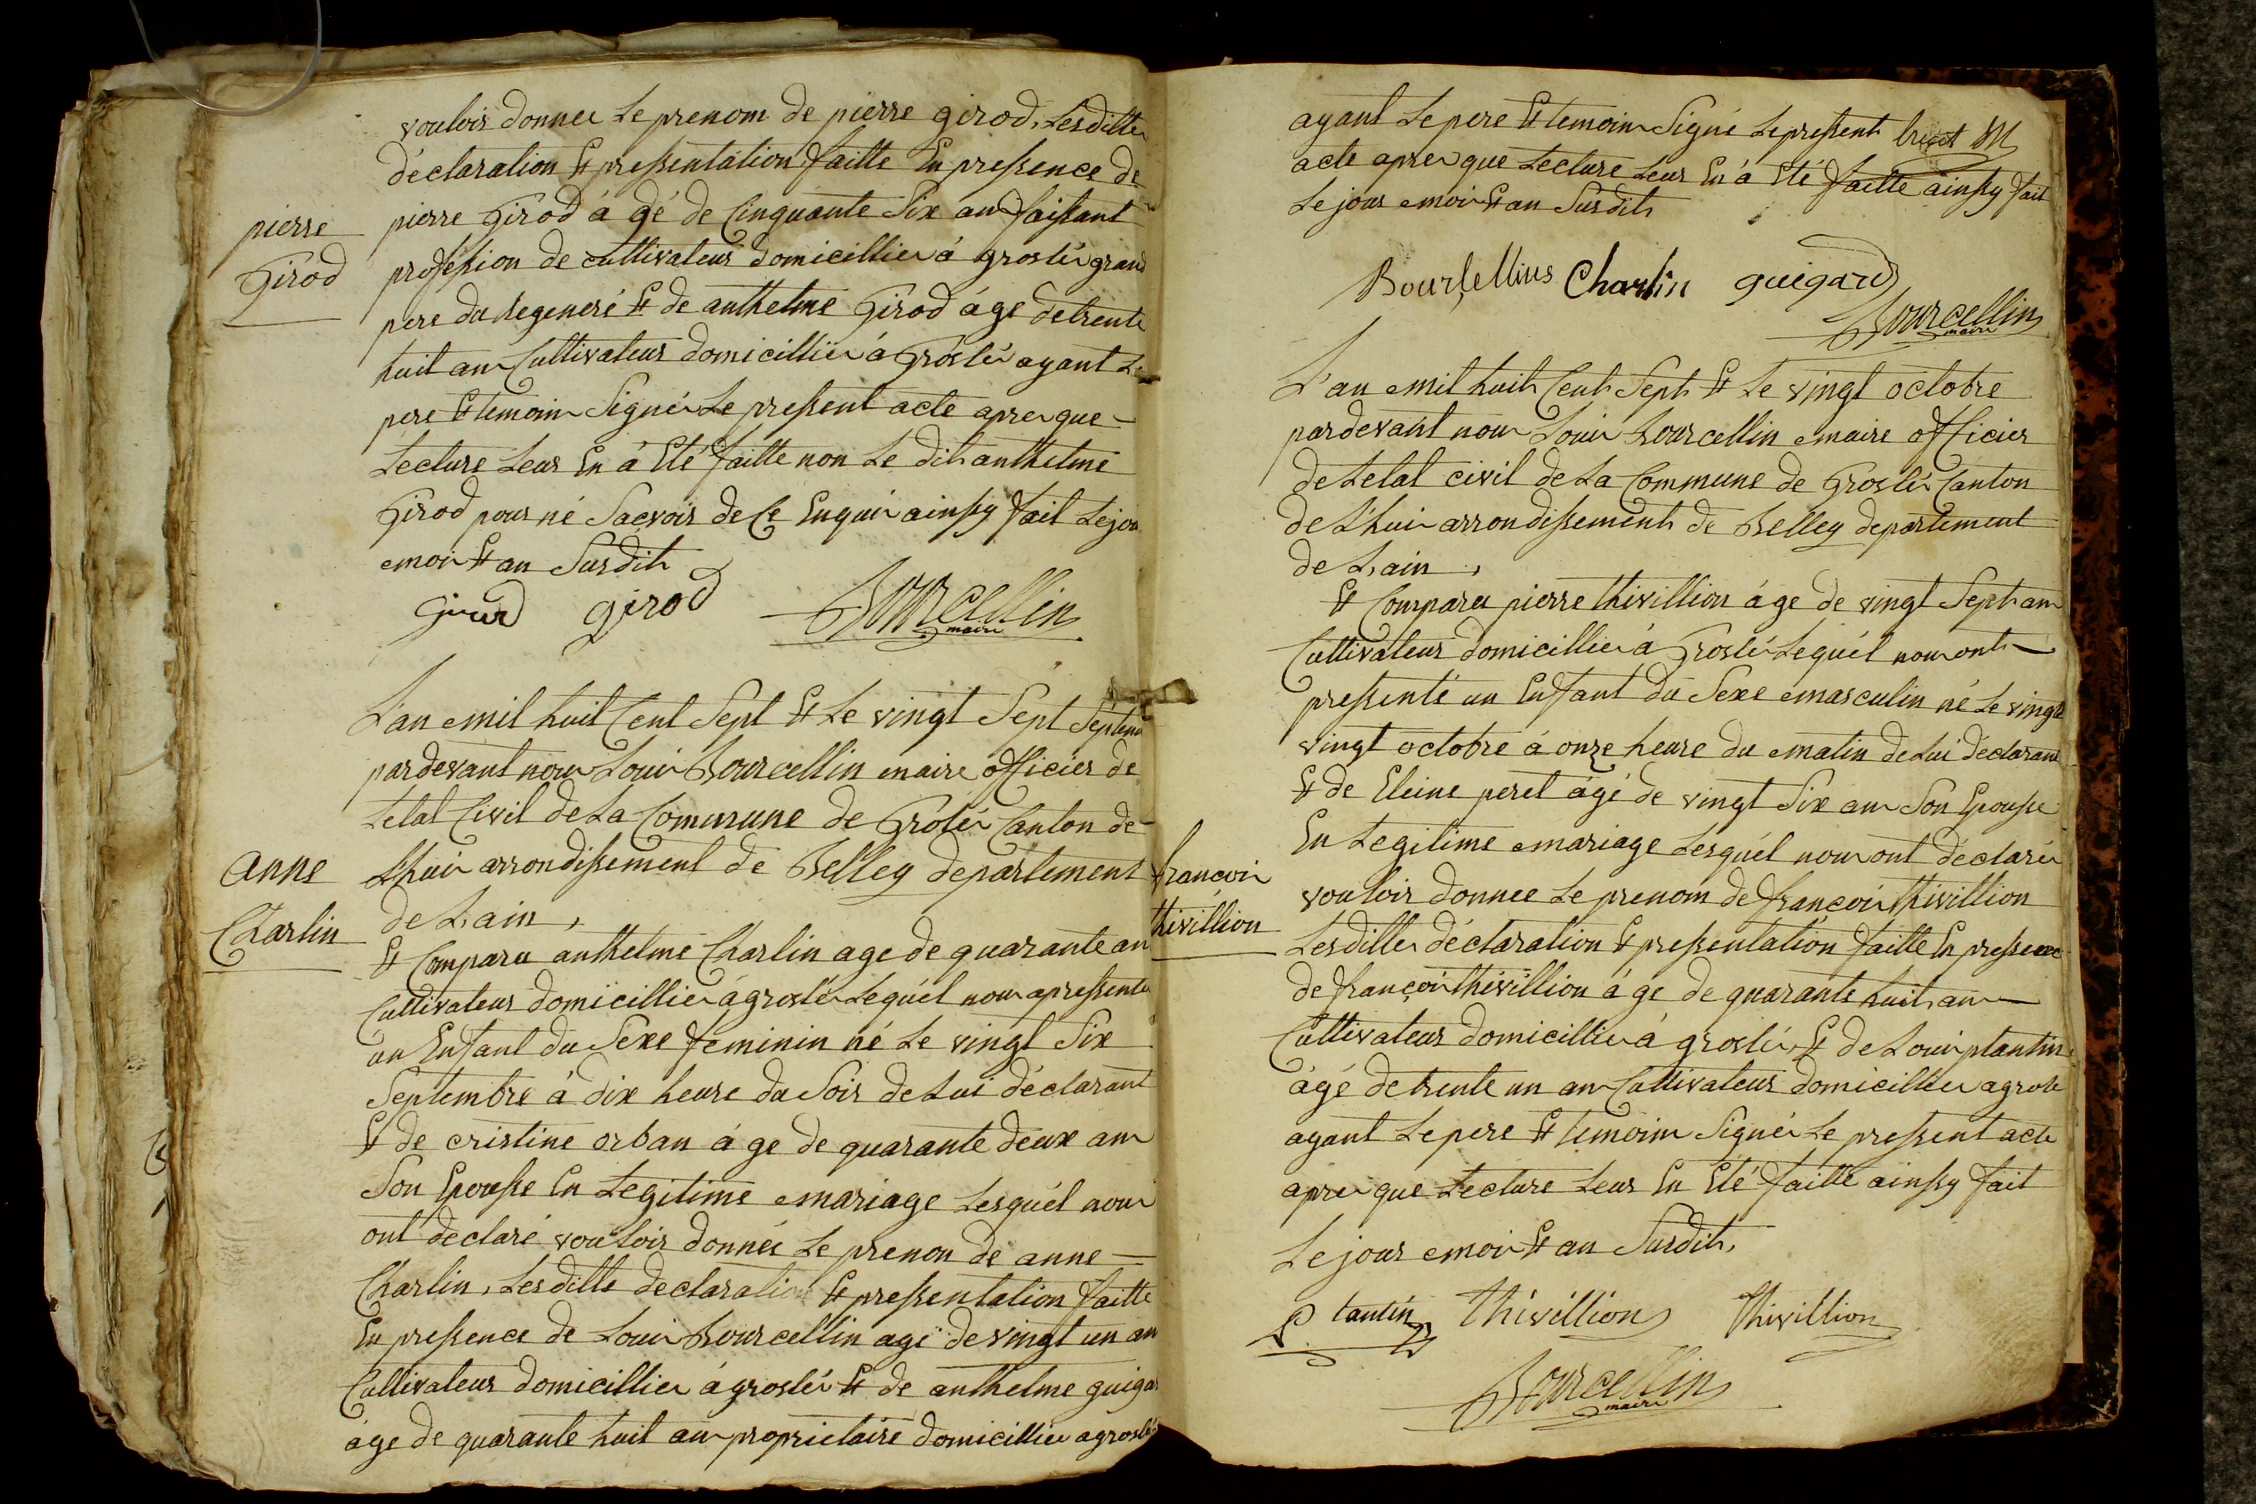 vouloir donner Le prenom de pierre girod, Lesdittes
déclaration Et pressentation faitte En pressence de
pierre
Girod
pierre Girod á gé de Cinquante Six ans faissant
profession de cultivateur domicillier á groslér grand
pere du regeneré Et de anthelme Girod ágé de trente
huit ans Cultivateur domicillier á Groslér ayant Le
pere Et temoins Signér Le pressent acte apres que
Lecture Leur En á Eté faitte non Le dit anthelme
Girod pour né Sacvoir de Ce Enquir ainssy fait Le jour
mois Et an Susdit
girod girod Bourcellin
maire
L'an mil huit Cent Sept Et Le vingt Sept Septembre
pardevant nous Louis Bourcellin maire officier de
Letat Civil de La Commune de Groslér Canton de
Anne
Charlin
Lhuis arrondissement de Belley departement
de Lain,
Et Comparu anthelme Charlin age de quarante an
Cultivateur domicillier ágroslér Lequél nous apressenté
un Enfant du Sexe feminin né Le vingt Six
Septembre á dix heure du Soir de Lui déclarant
Et de cristine orban á ge de quarante deux ans
Son Epousse En Legitime mariage Lesquél nous
ont déclaré vouloir donnér Le prenon de anne
Charlin, Lesditte declaration Et pressentation faitte
En pressence de Louis Bourcellin agé de vingt un an
Cultivateur domicillier ágroslér Et de anthelme guigar
áge de quarante huit ans proprietaire domicillier agroslér
ayant Le pere Et temoins Signé Le pressent
acte apres que Lecture Leur En á Eté faitte ainssy fait
Le jour mois Et an Susdit
Boursellius Charlin guigard
Bourcellin
maire
L'an mil huit Cent Sept Et Le vingt octobre
pardevant nous Louis Bourcellin maire officier
de Letat civil de La Commune de Groslér Canton
de L'huis arrondissement de Belley departement
de Lain,
Et Comparu pierre thivillion á ge de vingt Sept ans
Cultivateur domicillier á Groslér Lequél nous ont
pressenté un Enfant du Sexe masculin né Le vingt
vingt octobre á onze heure du matin de Lui déclarant
Et de Eleine peret ágé de vingt Six ans Son Epousse
En Legitime mariage Lesquél nous ont déclarér
francois
thivillion
vouloir donner Le prenom de françois thivillion
Lesditte déclaration Et pressentation faitte En pressence
de françois thivillion á ge de quarante huit ans
Cultivateur domicillier á groslér, Et de Louis plantin
ágé de trente un ans Cultivateur domicillier agrolé
ayant Le pere Et temoins Signér Le pressent acte
apres que Lecture Leur En Eté faitte ainssy fait
Le jour mois Et an Susdit,
P tantin thivillion thivillion
Bourcellin
maire